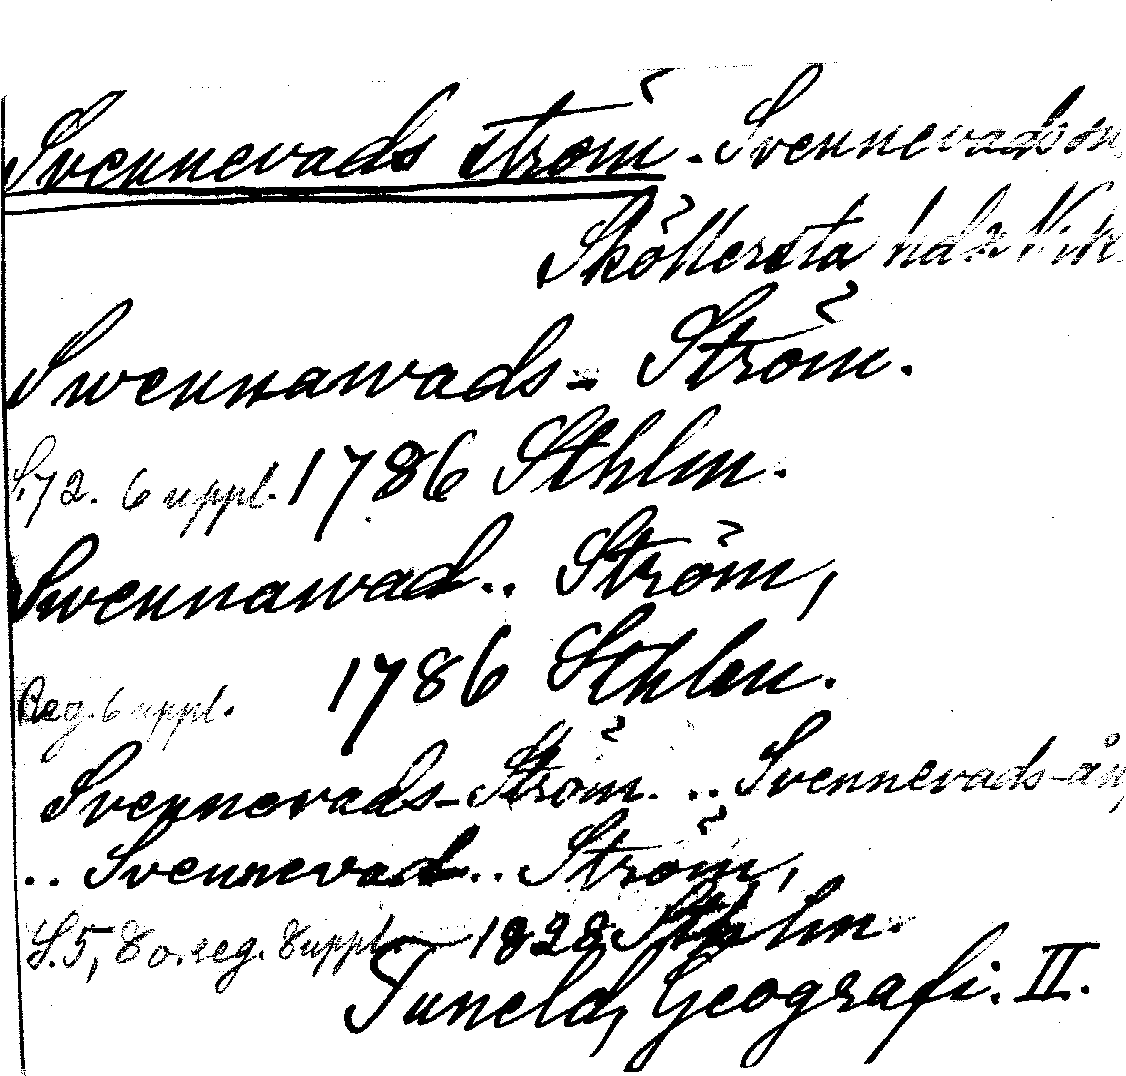 Svennevads ström. Svennevads sn,
Sköllersta hd
Swennawads-Ström.
S. 72. 6 uppl. 1786 Sthlm.
Swennawad.. Ström,
Reg. 6 uppl. 1786 Sthlm.
Svennevads-Ström. .. Svennevads-ån,
.. Svennevad.. Ström,
S. 5, 8 o. reg. 8 uppl. 1828 Sthlm.
Tuneld, Geografi. II.